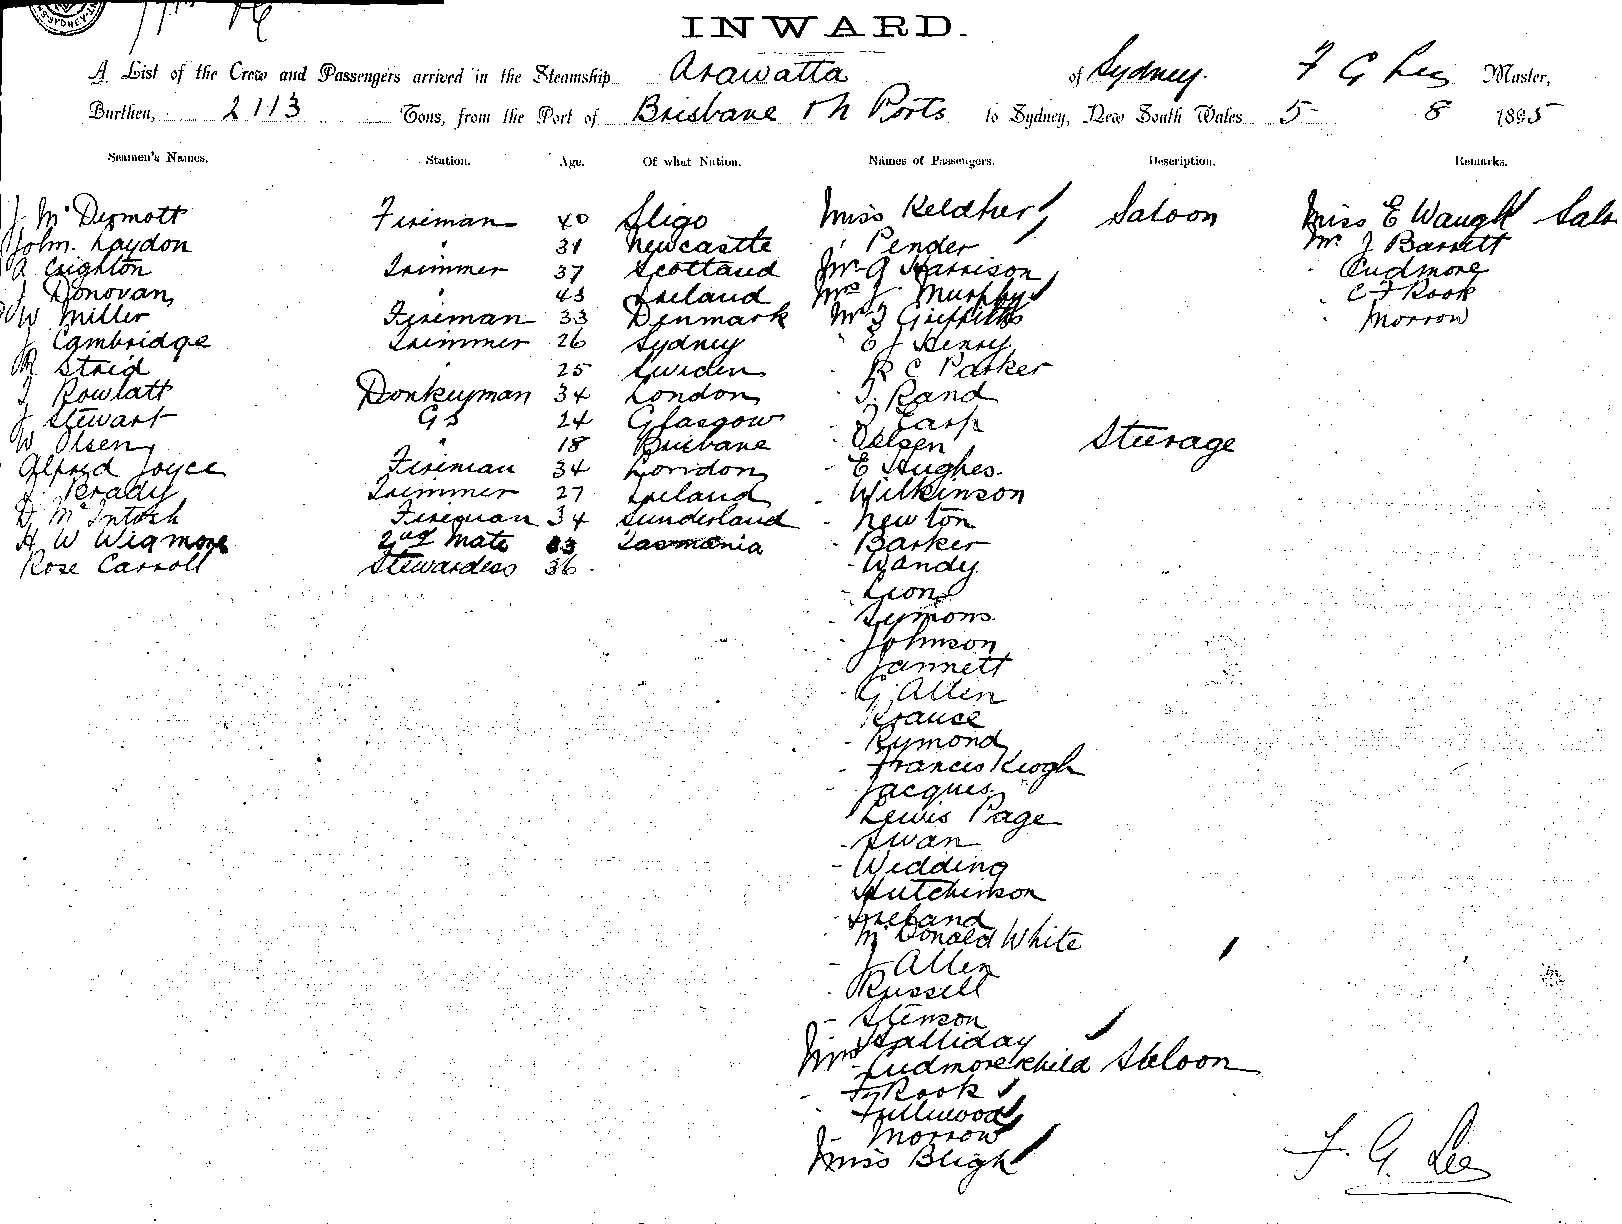 INWARD.
A List of the Crew and Passengers arrived in the Steamship Arawatta of Sydney. F G Lee Master,
Burthen, 2113 Tons, from the Port of Brisbane & N Ports to Sydney, New South Wales 5 8 1895
Seamen's Names. Station. Age. Of what Nation. Names of Passengers. Description. Remarks.
J McDermott Fireman 40 Sligo Miss Keldher Saloon Miss E Waugh
John Laydon " 31 Newcastle " Pender Mr J Barrett
A Crighton Trimmer 37 Scotland Mr A Harrison " Cudmore
J Donovan " 43 Ireland Mrs J Murphy " C F Rook
W Miller Fireman 33 Denmark Mr J Griffiths " Morrow
J Cambridge Trimmer 26 Sydney " E J Henry
R Staid " 25 Sweden " R C Parker
J Rowlatt Donkeyman 34 London " J. Rand
J Stewart GS 24 Glasgow Earp
W Olsen " 18 Brisbane " Oelsen Steerage
Alfred Joyce Fireman 34 London - E Hughes.
J. Brady Trimmer 27 Ireland - Wilkinson
D McIntosh Fireman 34 Sunderland - Newton
H W Wigmore 2nd Mate 33 Tasmania - Barker
Rose Carroll Stewardess 36 - Wandy
- Lion
- Symons
- Johnson
- Jannett
- G Allen
Krause
- Rymond
- Francis Keogh
- Jacques
Lewis Page
- Swan
- Wedding
Hutchinson
- Ireland
McDonald White
- J Allen
- Russell
- Stenson
Halliday
Mrs Cudmore & child Saloon
- Rook
- Fulliwood
- Morrow
Miss Bligh
F. G. Lee